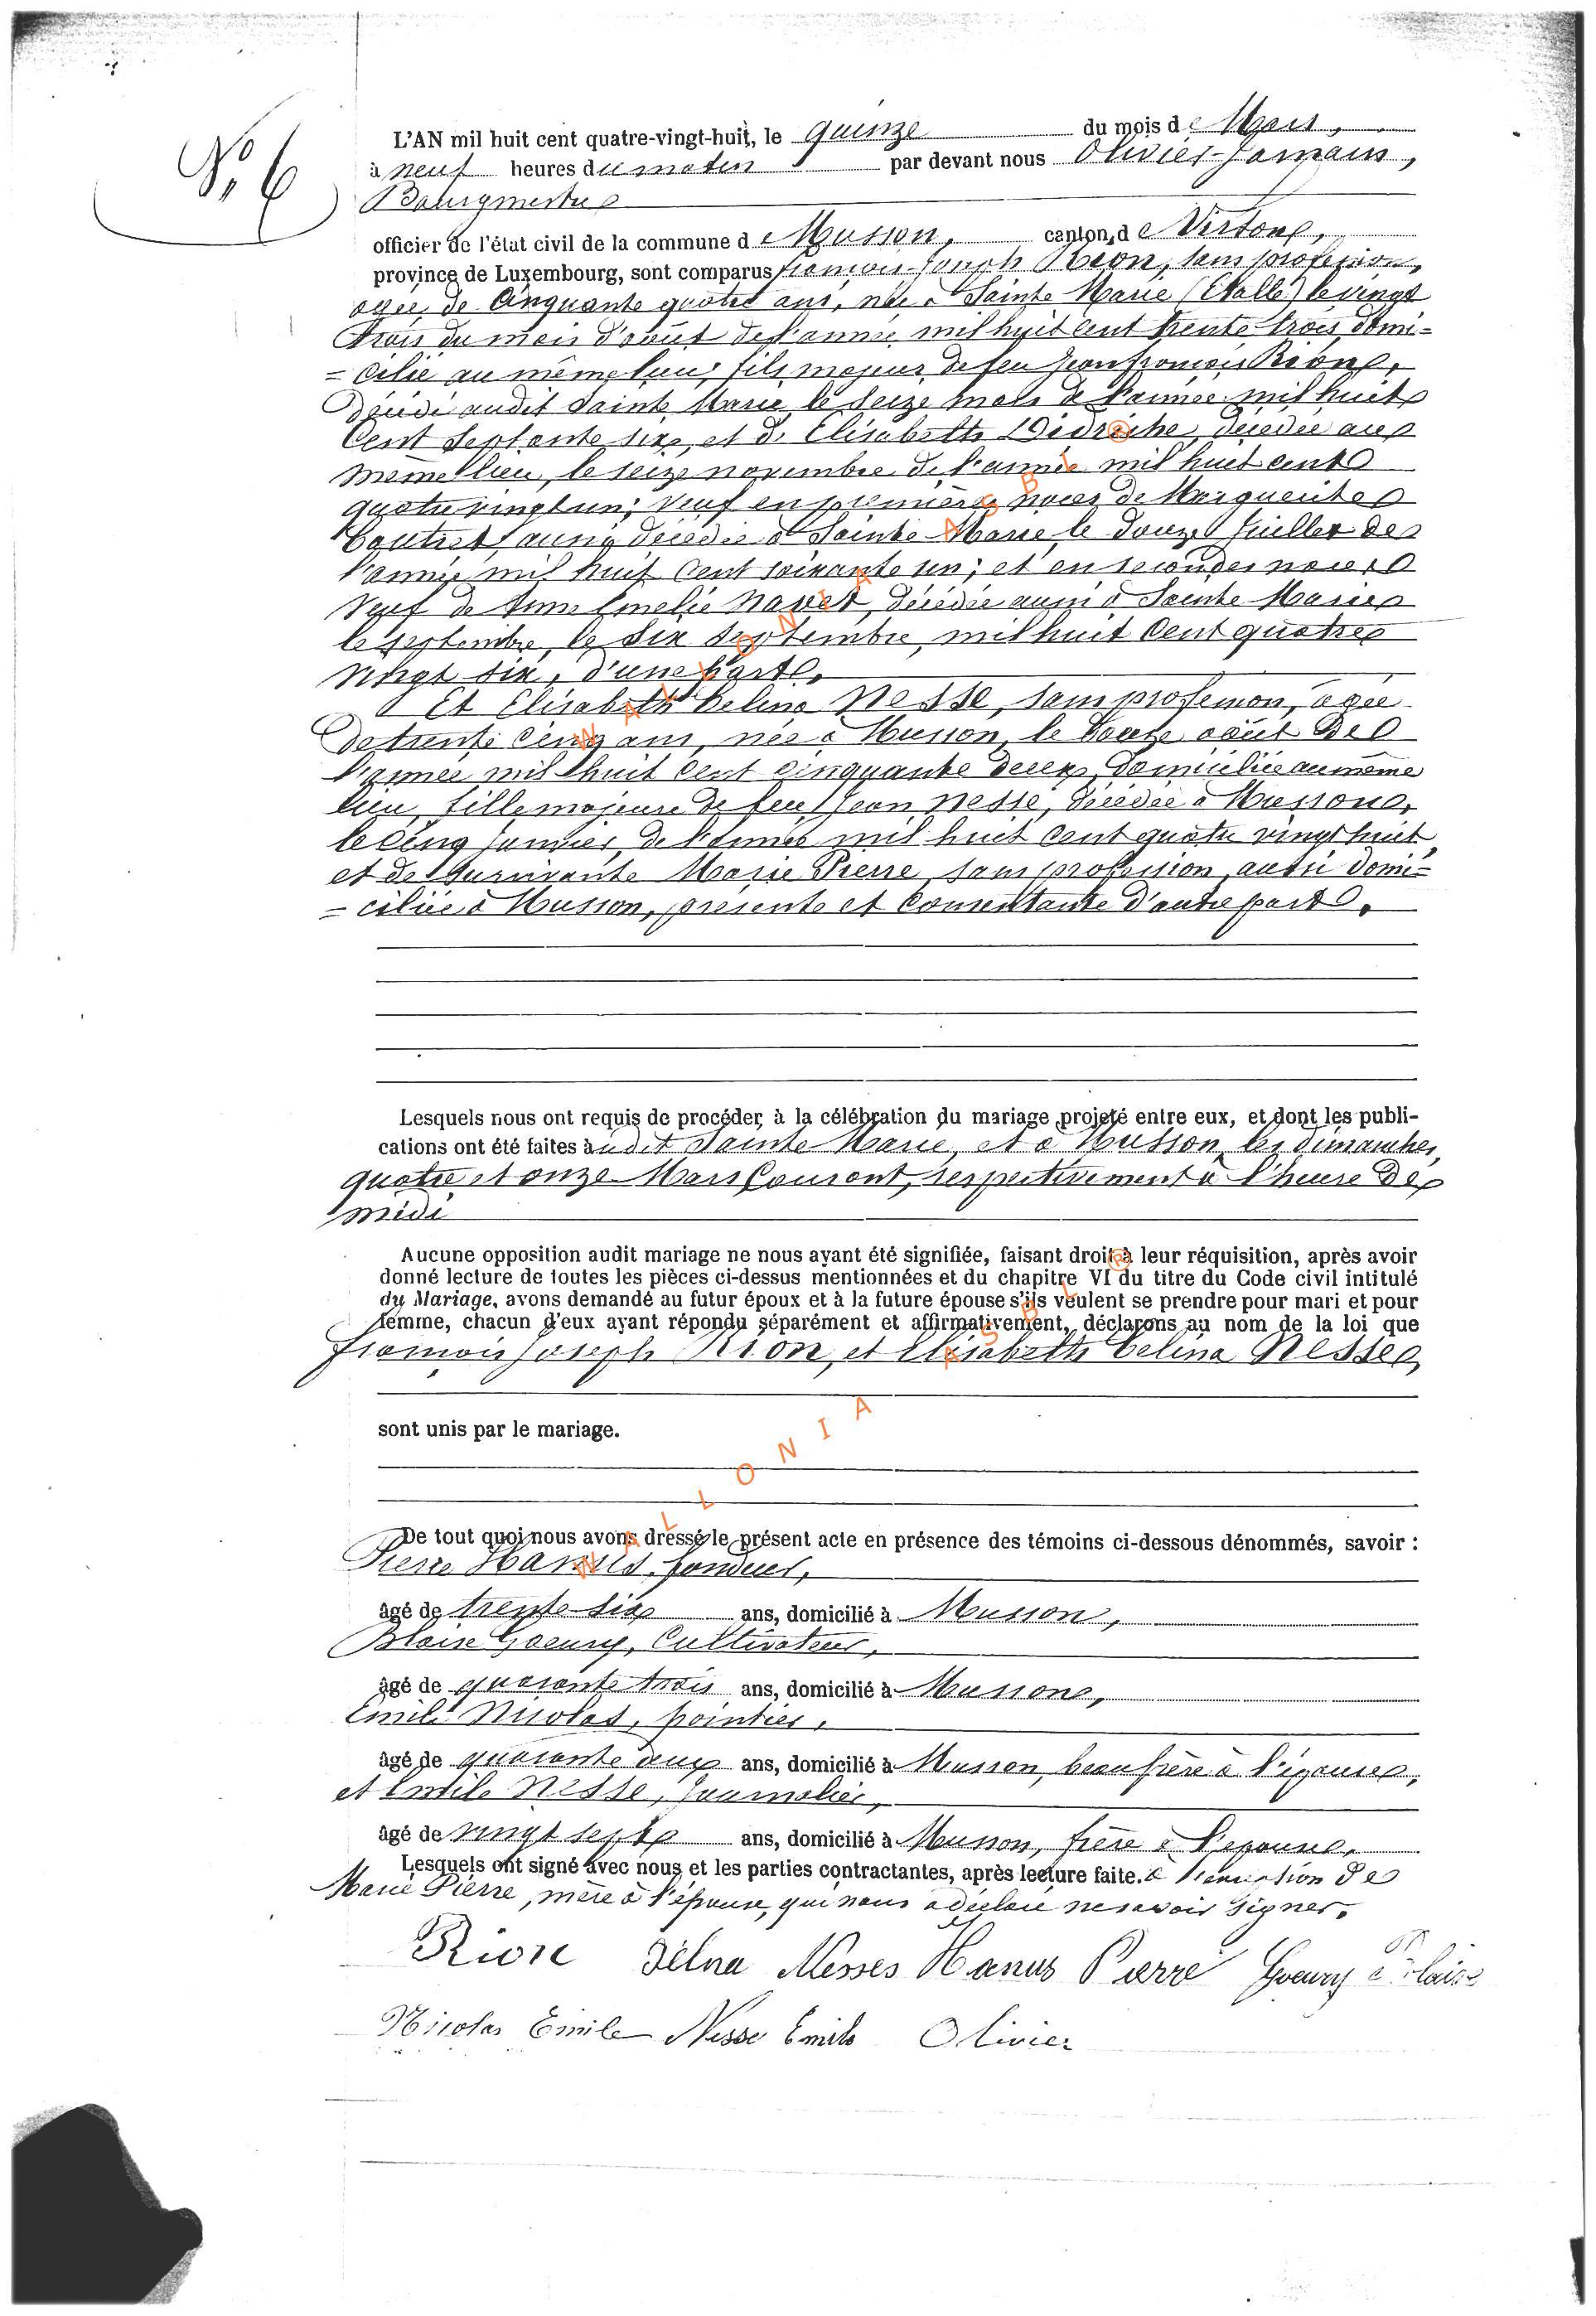 N° 6
L'AN mil huit cent quatre-vingt-huit, le quinze du mois de Mars,
à neuf heures du matin par devant nous Olivier Jamain,
Bourgmestre
officier de l'état civil de la commune de Musson, canton de Virton,
province de Luxembourg, sont comparus françois Joseph Rion, sans profession,
agée de Cinquante quatre ans, née à Sainte Marie (Etalle) le vingt
trois du mois d'août de l'année mil huit cent trente trois, domi=
=cilié au même lieu; fils majeur de feu Jean françois Rion,
décédé audit Sainte Marie le seize mars de l'année mil huit
Cent septante six, et de Elisabeth Didriche, décédée au
même lieu, le seize novembre de l'année mil huit cent
quatre vingt un; veuf en première noces de Marguerite
aussi décédée à Sainte Marie le douze Juillet de
l'année mil huit cent soixante un; et en secondes noces
Veuf de Anne Emelie Navet, décédée aussi à Sainte Marie
le septembre, le six septembre, mil huit Cent quatre
vingt six, d'une part.
Et Elisabeth Celina Nesse, sans profession, agée
de trente cinq ans, née à Musson, le août de
l'année mil huit cent cinquante deux, domiciliée au même
lieu, fille majeure de feu Jean Nesse, décédée à Musson,
le cinq Janvier, de l'année mil huit cent quatre vingt huit,
et de survivante Marie Pierre, sans profession, aussi domi=
=ciliée à Musson, présente et consentante d'autre part.
Lesquels nous ont requis de procéder, à la célébration du mariage projeté entre eux, et dont les publi-
cations ont été faites audit Sainte Marie, et à Musson, les dimanches,
quatre et onze Mars Courant, respectivement à l'heure de
midi
Aucune opposition audit mariage ne nous ayant été signifiée, faisant droit à leur réquisition, après avoir
donné lecture de toutes les pièces ci-dessus mentionnées et du chapitre VI du titre du Code civil intitulé
du Mariage, avons demandé au futur époux et à la future épouse s'ils veulent se prendre pour mari et pour
femme, chacun d'eux ayant répondu séparément et affirmativement, déclarons au nom de la loi que
françois Joseph Rion, et Elisabeth Celina Nesse,
sont unis par le mariage.
De tout quoi nous avons dressé le présent acte en présence des témoins ci-dessous dénommés, savoir :
Pierre Hanus, fondeur,
âgé de trente six ans, domicilié à Musson,
Blaise Goeury, Cultivateur,
âgé de quarante trois ans, domicilié à Musson,
Emile Nicolas, pointier,
âgé de quarante deux ans, domicilié à Musson, beau frère à l'épouse,
et Emile Nesse, Journalier,
âgé de vingt sept ans, domicilié à Musson, frère à l'épouse,
Lesquels ont signé avec nous et les parties contractantes, après lecture faite. à l'exception de
Marie Pierre, mère à l'épouse, qui nous a déclaré ne savoir signer.
Rion Nesses Hanus Pierre Goeury Blaise
Nicolas Emile Nesse Emile Olivier
WALLONIA ASBL ®
WALLONIA ASBL ®